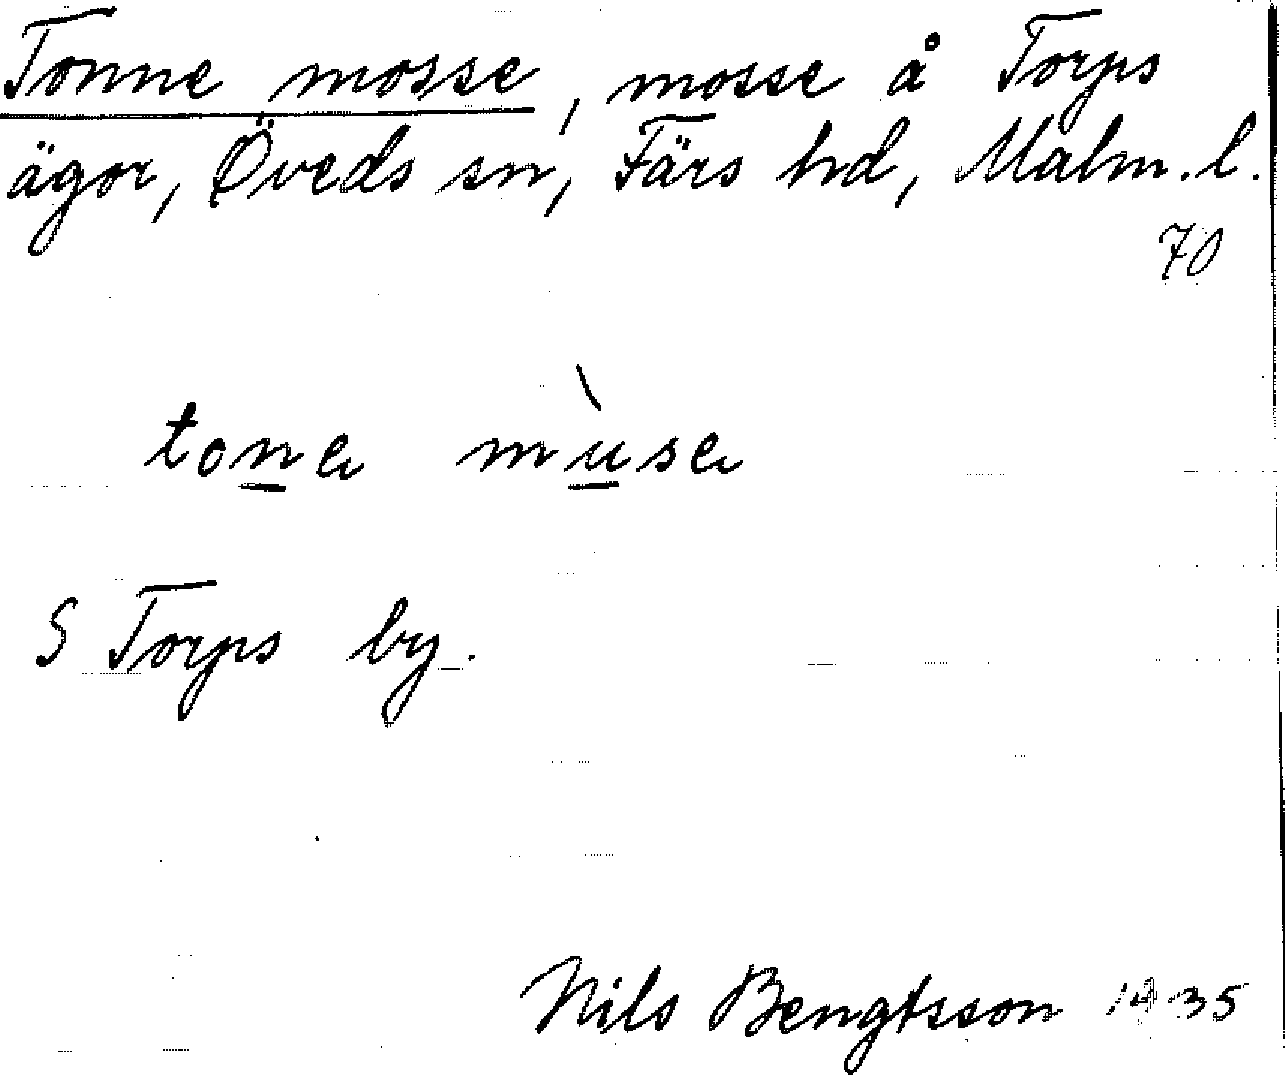 Tonne mosse, mosse å Torps
ägor, Öveds sn, Färs hd, Malm. l.
70
tone mùse
S Torps by.
Nils Bengtsson 1935